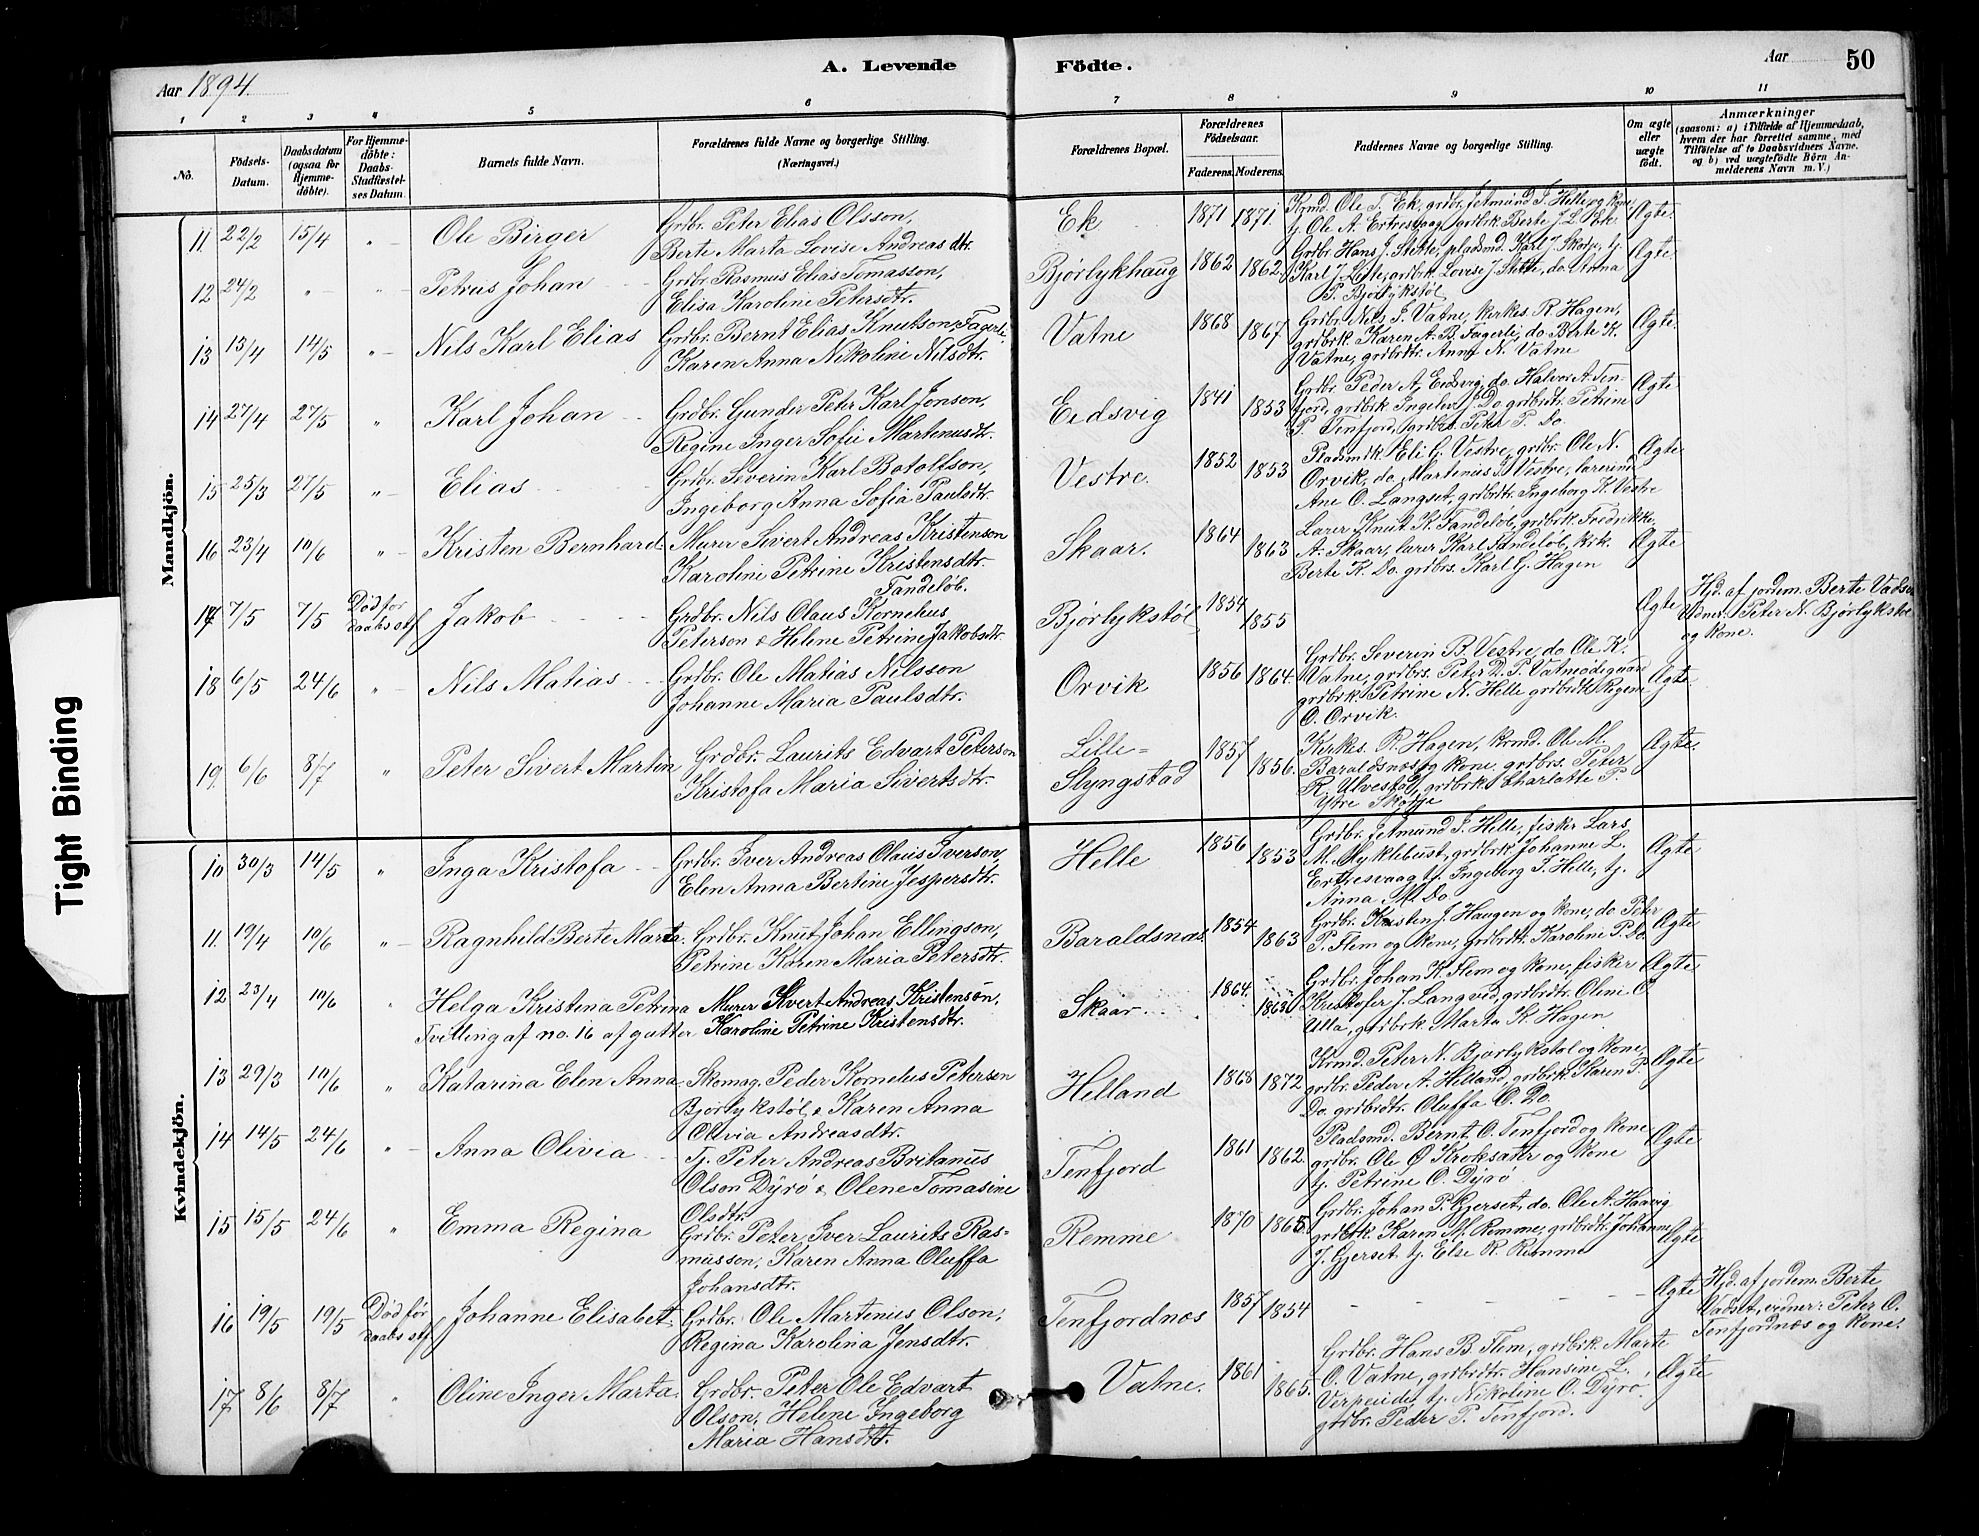 Aar 1894
A. Levende
Födte.
Aar
50
1 2 3 4 5 6 7 8 9 10 11
No.
Födsels-
Datum.
Daabsdatum
(ogsaa for
Hjemme-
döbte).
For Hjemme-
döbte:
Daabs-
Stadfæstel-
ses Datum.
Barnets fulde Navn.
Forældrenes fulde Navne og borgerlige Stilling.
(Næringsvei.)
Forældrenes Bopæl.
Forældrenes
Födselsaar.
Faderens. Moderens.
Faddernes Navne og borgerlige Stilling.
Om ægte
eller
uægte
födt.
Anmærkninger
(saasom: a) i Tilfælde af Hjemmedaab,
hvem der har forrettet samme, med
Tilföielse af to Daabsvidners Navne.
og b) ved uægtefödte Börn An-
melderens Navn m.V.)
Mandkjön.
11 22/2 15/4 " Ole Birger
Grdbr. Peter Elias Olsson,
Berte Marta Lovise Andreasdtr.
Ek 1871 1871.
Krmd. Ole T. Ek, grdbr. Jetmund J. Helle og kone,
tj. Ole A. Ertresvaag, grdbrk. Berte J. L. Ek.
Ægte.
12 24/2 " " Petrus Johan
Grdbr. Rasmus Elias Tomasson,
Elisa Karoline Petersdtr.
Bjørlykhaug 1862 1862.
Grdbr. Hans J. Stette, pladsmd. Karl J. Skotje, tj.
Karl J. Stette, grdbrk. Lovise J. Stette, do. Anna
P. Bjørlykstøl
Ægte
13 13/4 14/5 " Nils Karl Elias
Grdbr. Bernt Elias Knutson Fagerli,
Karen Anna Nikoline Nilsdtr.
Vatne 1868 1867
Grdbr. Nils J. Vatne, kirkes. R. Hagen,
grdbrk. Karen A. B. Fagerli, do. Berte K.
Vatne, grdbrdtr. Anna N. Vatne
Ægte.
14 27/4 27/5 " Karl Johan
Grdbr. Gunder Peter Karl Jonson,
Regine Inger Sofie Martenusdtr.
Eidsvig 1841 1853
Grdbr. Peder A. Eidsvig, do. Halvor A. Ten-
fjord, grdbrk. Ingelev J. Do. grdbrdtr. Petrine
P. Tenfjord, grdbrs. Peter P. Do.
Ægte
15 25/3 27/5 " Elias
Grdbr. Severin Karl Botolfson,
Ingeborg Anna Sofia Paulsdtr.
Vestre. 1852 1853
Pladsmdk. Eli G. Vestre, grdbr. Ole N.
Orvik, do. Martenus J. Vestre, lærerinde
Ane O. Langset, grdbrdtr. Ingeborg K. Vestre
Ægte
16 23/4 10/6 " Kristen Bernhard
Murer Sivert Andreas Kristenson
Karoline Petrine Kristensdtr.
Tandeløb.
Skaar. 1864 1863
Lærer Knut K. Tandeløb, grdbrk. Fredrikke
A. Skaar, lærer Karl Tandeløb, krk.
Berte K. Do. grdbrs. Karl G. Hagen
Ægte
17 7/5 7/5 Død før
daabs stf.
Jakob
Grdbr. Nils Claus Kornelius
Peterson & Helene Petrine Jakobsdtr.
Bjørlykstøl 1854 1855
Ægte
Hjd. af jordem. Berte Vadset
Vidner: Peter N. Bjørlykstøl
og kone.
18 6/5 24/6 " Nils Matias
Grdbr. Ole Matias Nilsson
Johanne Maria Paulsdtr.
Orvik 1856 1864.
Grdbr. Severin B. Vestre, do. Ole K.
Vatne, grdbrs. Peter D. P. Vatneødegaard
grdbrk. Petrine N. Helle grdbrdtr. Regine
O. Orvik.
Ægte.
19. 6/6 8/7 " Peter Sivert Martin
Grdbr. Laurits Edvart Peterson
Kristofa Maria Sivertsdtr.
Lille-
Slyngstad 1857 1856.
Kirkes. R. Hagen, krmd. Ole M.
Baraldsnes og kone, grdbrs. Peter
R. Ulvestad, grdbrk. Charlotte P.
Ytre Skotje
Ægte.
Kvindekjön.
10 30/3 14/5 " Inga Kristofa
Grdbr. Iver Andreas Olaus Iverson,
Elen Anna Bertine Jespersdtr.
Helle 1856 1853
Grdbr. Jetmund J. Helle, fisker Lars
M. Myklebust, grdbrk. Johanne L.
Ertresvaag tj. Ingeborg J. Helle, tj.
Anna M. Do
Ægte
11. 19/4 10/6 " Ragnhild Berte Marta.
Grdbr. Knut Johan Ellingson,
Petrine Karen Maria Petersdtr.
Baraldsnæs 1854 1863
Grdbr. Kristen J. Haugen og kone, do. Peter
P. Flem og kone, grdbrdtr. Karoline P. Do.
Ægte
12 23/4 10/6 " Helga Kristina Petrina
Tvilling af no. 16 af gutter
Murer Sivert Andreas Kristensøn,
Karoline Petrine Kristensdtr.
Skaar 1864. 1863
Grdbr. Johan K. Flem og kone, fisker
Kristofer J. Langved, grdbrdtr. Oline O.
Ulla, grdbrk. Marta K. Hagen
Ægte
13 29/3 10/6 " Katarina Elen Anna
Skomag. Peder Kornelus Peterson
Bjørlykstøl, & Karen Anna
Olivia Andreasdtr.
Helland 1868 1872
Krmd. Peter N. Bjørlykstøl og kone,
grdbr. Peder A. Helland, grdbrk. Karen P.
Do. grdbrdtr. Oluffa O. Do.
Ægte
14 14/5 24/6 " Anna Olivia
Tj. Peter Andreas Britanus
Olson Dyrø & Olene Tomasine
Olsdtr.
Tenfjord 1861 1862.
Pladsmd. Bernt O. Tenfjord og kone
grdbr. Ole Ø. Kroksæter og kone
tj. Petrine O. Dyrø
Ægte
15 15/5 24/6 " Emma Regina
Grdbr. Peter Iver Laurits Ras-
musson, Karen Anna Oluffa
Johansdtr.
Remme 1870 1865.
Grdbr. Johan P. Gjerset, do. Ole A. Haavig
grdbrk. Karen M. Remme, grdbrdtr. Johanne
J. Gjerset tj. Else R. Remme
Ægte
16 19/5 19/5 Død før
daabs stf
Johanne Elisabet
Grdbr. Ole Martenius Olson,
Regina Karolina Jensdtr.
Tenfjordnæs 1857 1854
Ægte
Hjd. af jordem. Berte
Vadset, vidner: Peter O.
Tenfjordnæs og kone.
17 8/6 8/7 " Oline Inger Marta
Grdbr. Peter Ole Edvart
Olson, Helene Ingeborg
Maria Hansdtr.
Vatne. 1861 1865.
Grdbr. Hans B. Flem, grdbrk. Marte
O. Vatne, grdbrdtr. Hansine L.
Verpeide, tj. Nikoline O. Dyrø.
grdbr. Peder P. Tenfjord.
Ægte
Tight Binding